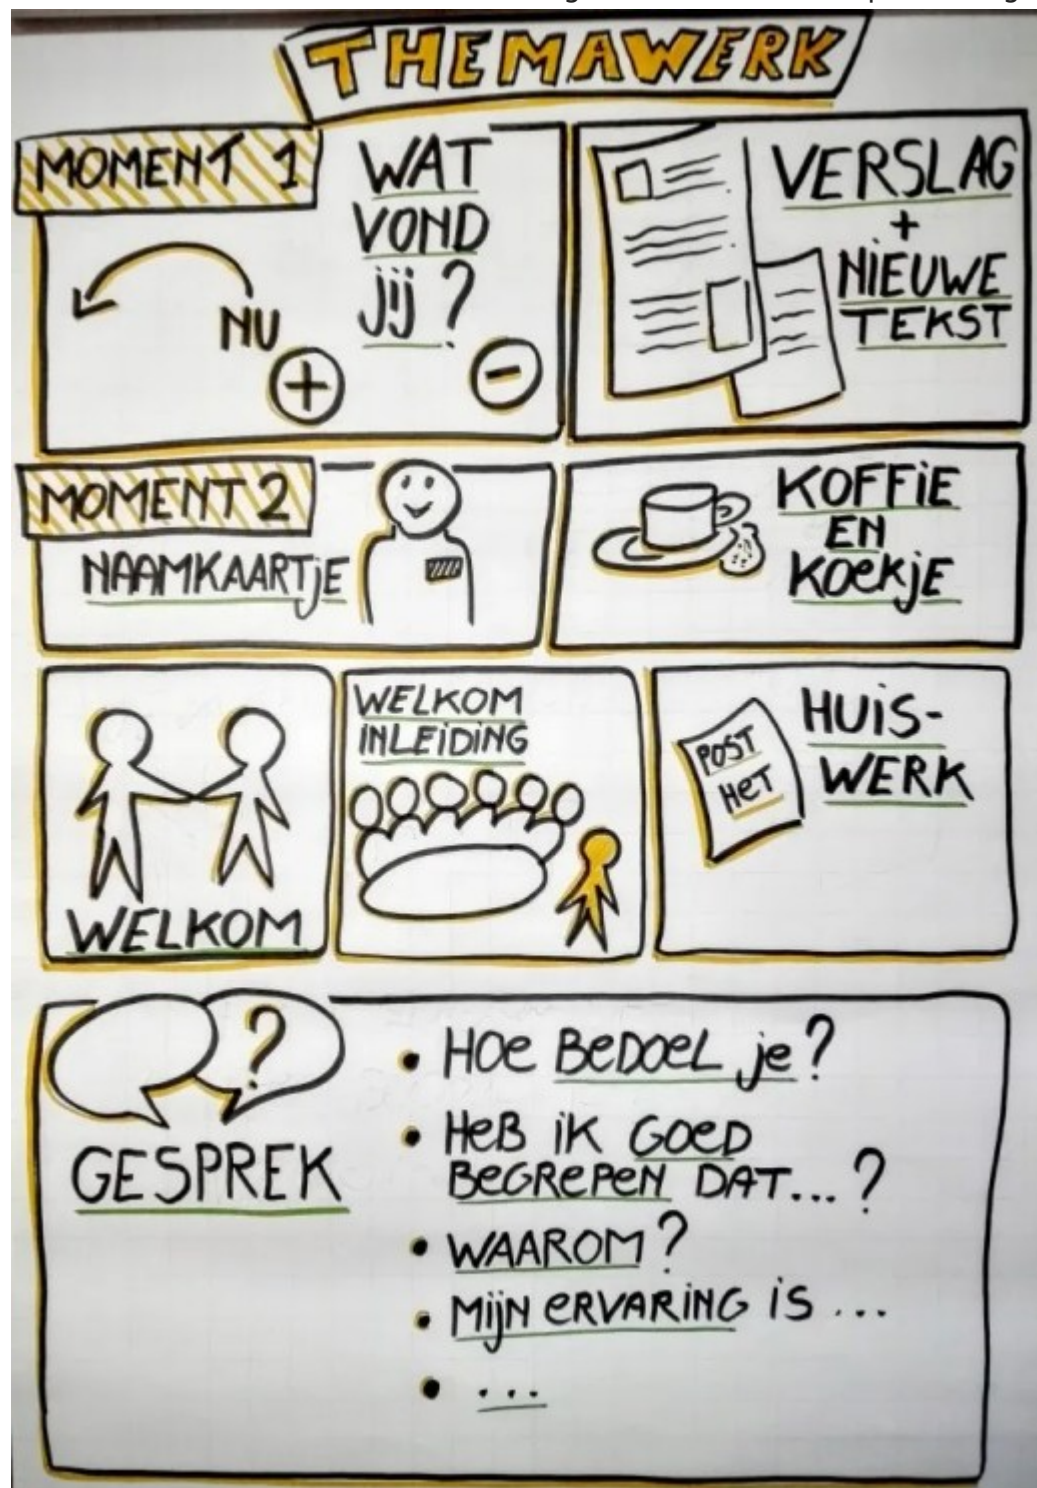 THEMAWERK
MOMENT 1
WAT
VOND
jij?
NU
+
-
VERSLAG
+
NiEUWE
TEKST
MOMENT 2
NAAMKAARTjE
KOFFiE
EN
KOeKjE
WELKOM
WELKOM
iNLEiDiNG
POST
HeT
HUiS-
WERK
?
GESPREK
• HOe BeDOeL je?
• HeB iK GOeD
BeGRePeN DAT...?
• WAAROM?
• MijN eRVARiNG iS ...
• ...